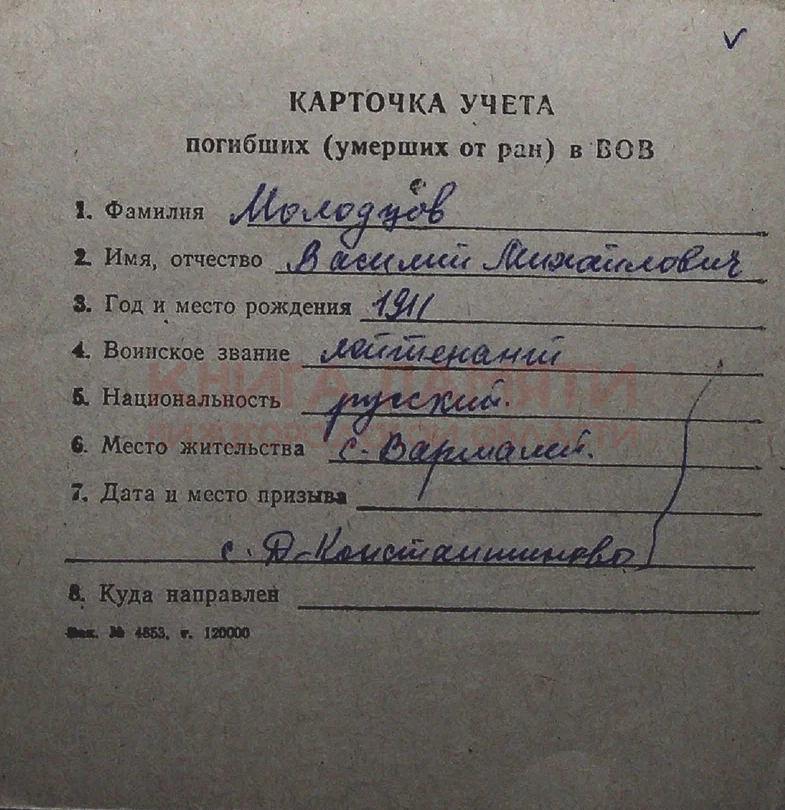 КАРТОЧКА УЧЕТА
погибших (умерших от ран) в ВОВ
1. Фамилия Молодцов
2. Имя, отчество Василий Михайлович
3. Год и место рождения 1911
4. Воинское звание лейтенант
5. Национальность русский.
КНИГА ПАМЯТИ
НИЖЕГОРОДСКОЙ ОБЛАСТИ
6. Место жительства с. Вармалей.
7. Дата и место призыва
с. Д-Константиново
8. Куда направлен
Зак. № 4853, т. 120000